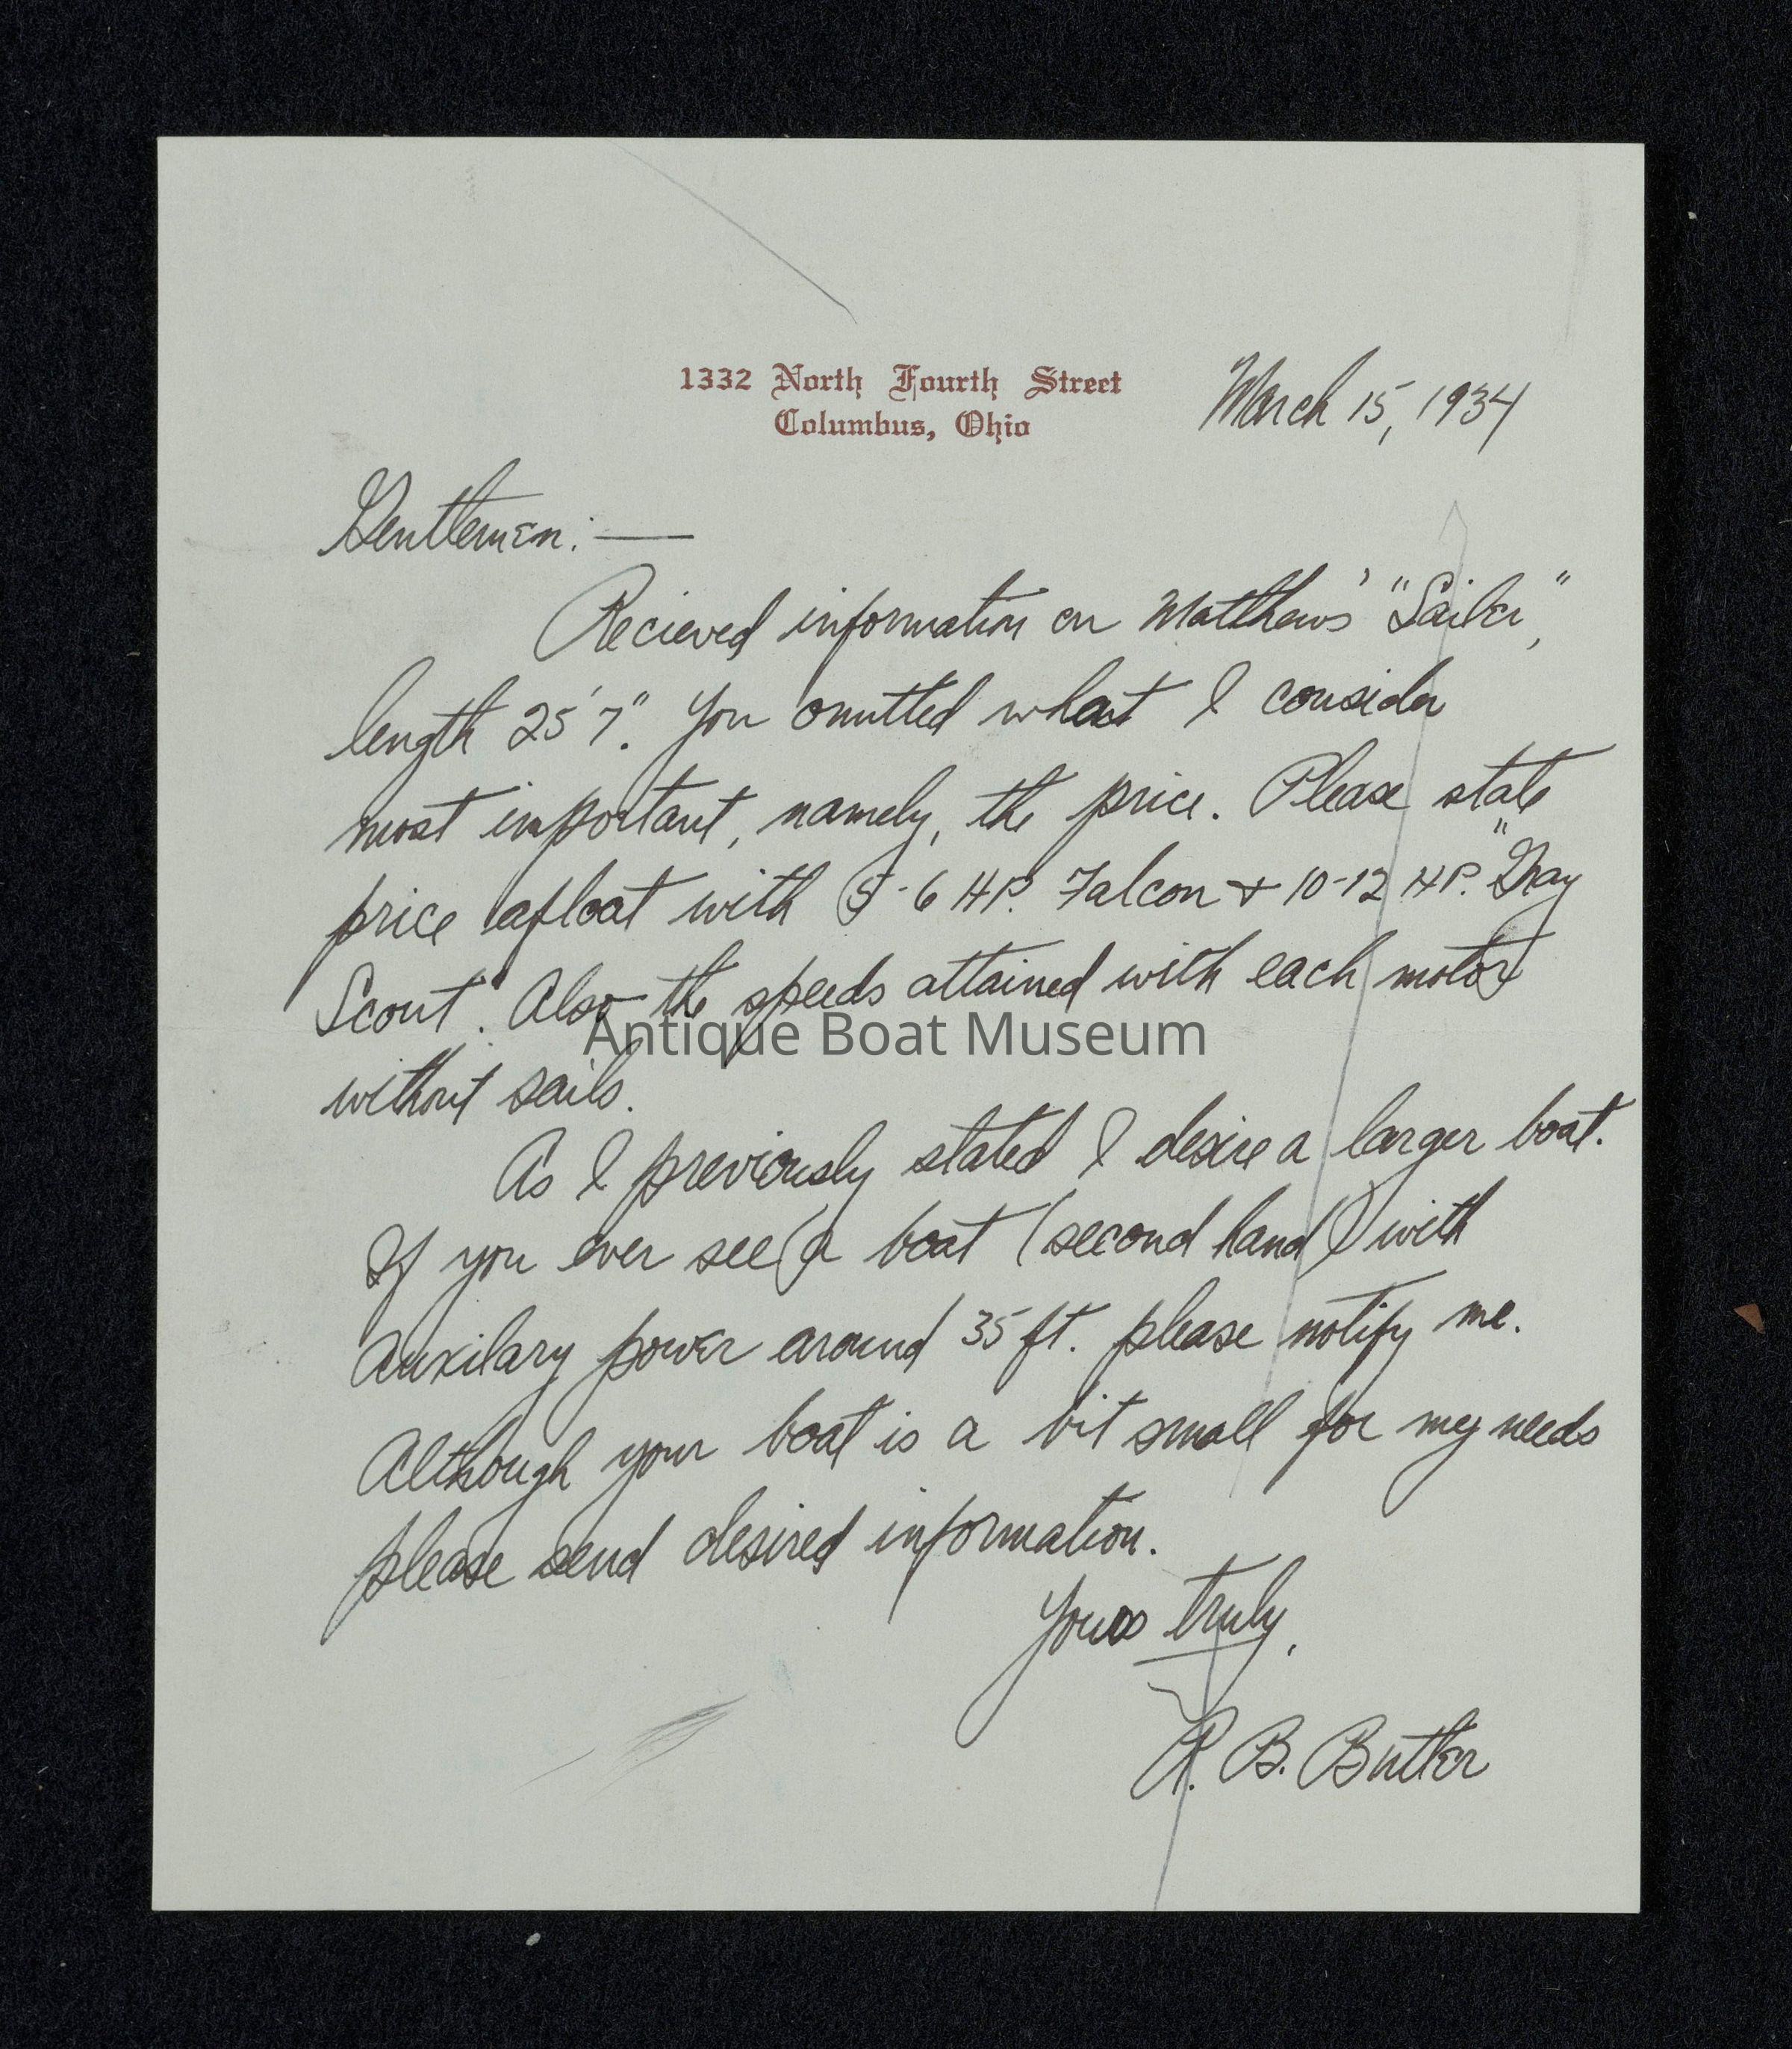 1332 North Fourth Street
Columbus, Ohio
March 15, 1934
Gentlemen:—
Recieved information on Matthews' "Sailer",
length 25'7". You omitted what I consider
most important, namely, the price. Please state
price afloat with 5-6 HP. Falcon + 10-12 HP. "Gray
Scout". Also the speeds attained with each motor
Antique Boat Museum
without sails.
As I previously stated I desire a larger boat.
If you ever see a boat (second hand) with
auxilary power around 35 ft. please notify me.
Although your boat is a bit small for my needs
please send desired information.
Yours truly,
R. B. Butler